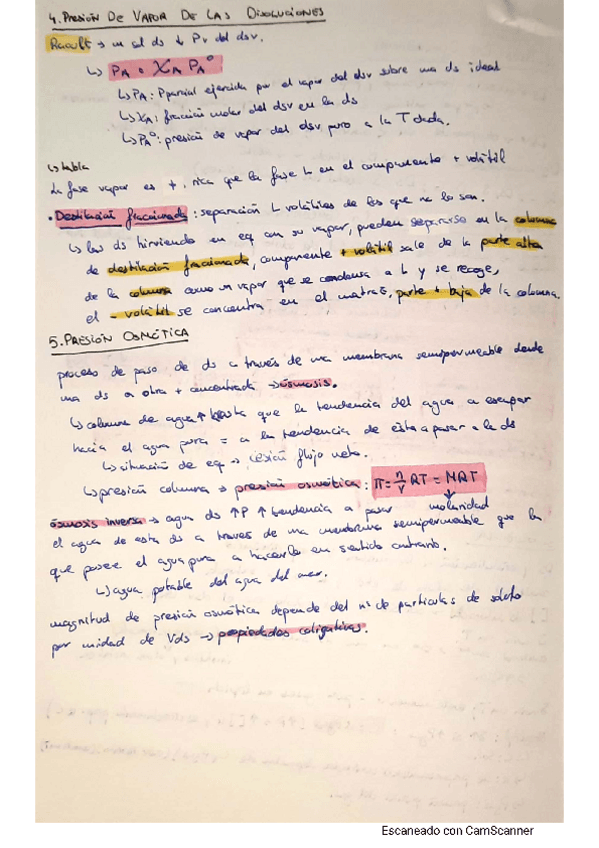 4. PRESIÓN DE VAPOR DE LAS DISOLUCIONES
Raoult → un sol ds ↓ Pv del dsv.
↳ PA = XA PA°
↳ PA: Pparcial ejercida por el vapor del dsv sobre una ds ideal
↳ XA: fracción molar del dsv en la ds
↳ PA°: presión de vapor del dsv puro a la T dada.
↳ tabla
La fase vapor es + rica que la fase L en el componente + volátil
• Destilación fraccionada: separación L volátiles de los que no lo son.
↳ las ds hirviendo en eq con su vapor, pueden separarse en la columna
de destilación fraccionada, componente + volátil sale de la parte alta
de la columna como un vapor que se condensa a L y se recoge,
el - volátil se concentra en el matraz, parte + baja de la columna.
5. PRESIÓN OSMÓTICA
proceso de paso de ds a través de una membrana semipermeable desde
una ds a otra + concentrada → ósmosis.
↳ columna de agua ↑ hasta que la tendencia del agua a escapar
hacia el agua pura = a la tendencia de esta a pasar a la ds
↳ situación de eq → flujo neto.
↳ presión columna → presión osmótica: π = n/V RT = MRT
↓
molaridad
ósmosis inversa → agua ds ↑P ↑ tendencia a pasar
el agua de esta ds a traves de una membrana semipermeable que la
que posee el agua pura a hacerlo en sentido contrario.
↳ agua potable del agua del mar.
magnitud de presión osmótica depende del nº de partículas de soluto
por unidad de Vds → propiedades coligativas.
Escaneado con CamScanner